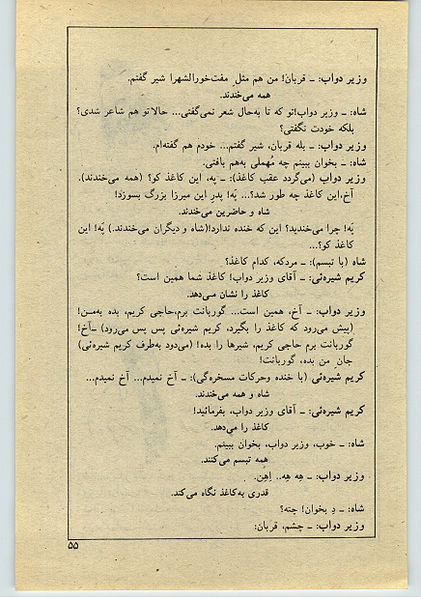 وزیر دواب: ـ قربان! من هم مثل مفت‌خورالشهرا شیر گفتم.
همه می‌خندند.
شاه: ـ وزیر دواب! تو که تا به‌حال شعر نمی‌گفتی... حالا تو هم شاعر شدی؟
بلکه خودت نگفتی؟
وزیر دواب: ـ بله قربان، شیر گفتم... خودم هم گفته‌ام.
شاه: ـ بخوان ببینم چه مُهملی به‌هم بافتی.
وزیر دواب (می‌گردد عقب کاغذ): ـ یه، این کاغذ کو؟ (همه می‌خندند).
آخ، این کاغذ چه طور شد؟... یَه! پدر این میرزا بزرگ بسوزد!
شاه و حاضرین می‌خندند.
یَه! چرا می‌خندید؟ این که خنده ندارد! (شاه و دیگران می‌خندند.) یَه! این
کاغذ کو؟...
شاه (با تبسم): ـ مردکه، کدام کاغذ؟
کریم شیره‌ئی: ـ آقای وزیر دواب! کاغذ شما همین است؟
کاغذ را نشان می‌دهد.
وزیر دواب: ـ آخ، همین است... گوربانت برم، حاجی کریم، بده به‌من!
(پیش می‌رود که کاغذ را بگیرد، کریم شیره‌ئی پس پس می‌رود) ـ آخ!
گوربانت برم حاجی کریم، شیرها را بده! (می‌دود به‌طرف کریم شیره‌ئی)
جان من بده، گوربانت!
کریم شیره‌ئی (با خنده وحرکات مسخره‌گی): ـ آخ نمیدم... آخ نمیدم...
شاه و همه می‌خندند.
کریم شیره‌ئی: ـ آقای وزیر دواب، بفرمائید!
کاغذ را می‌دهد.
شاه: ـ خوب، وزیر دواب، بخوان ببینم.
همه تبسم می‌کنند.
وزیر دواب: ـ هِه هِه.. اِهِن.
قدری به‌کاغذ نگاه می‌کند.
شاه: ـ دِ بخوان! چته؟
وزیر دواب: ـ چشم، قربان:
۵۵